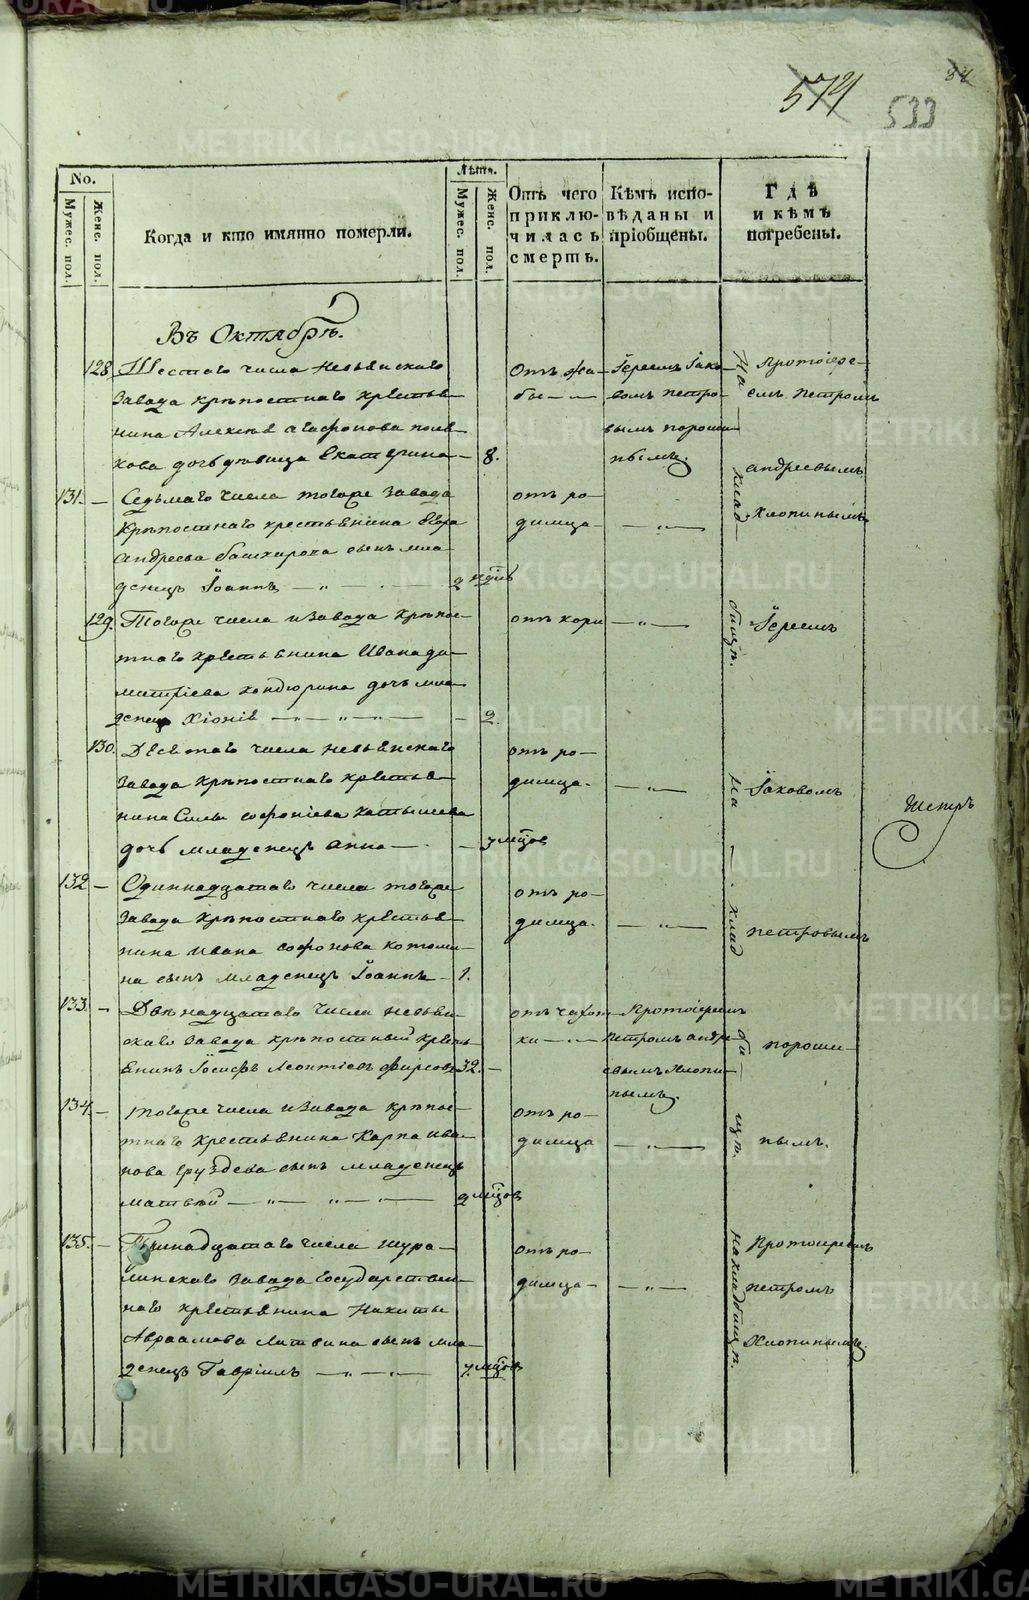 574
533
No.
Мужес. пол.
Женс. пол.
Когда и кто имянно померли.
Лѣта.
Мужес. пол.
Женс. пол.
Отъ чего приклю-
чилась смерть.
Кѣмъ испо-
вѣданы и
пріобщены.
Гдѣ
и кѣмъ
погребены.
Въ Октябрѣ.
128. Шестаго числа Невьянскаго
завода крѣпостнаго крестья-
нина Алексѣя Агафонова
дочь дѣвица Екатерина — 8.
Отъ жа-
бы — „ —
Іереемъ Іако-
вомъ Петро-
вымъ Пороши-
нымъ.
На
клад-
бищѣ.
Протоіере-
емъ Петромъ
Андреевымъ
Хлопинымъ
131. — Седьмаго числа тогоже завода
крѣпостнаго крестьянина
Андреева Башкирова сынъ мла-
денецъ Іоаннъ — „ —
отъ ро-
димца — „ —
129. Тогоже числа и завода крѣпос-
тнаго крестьянина Ивана Ди-
митріева Кондюрина дочь мла-
денецъ Хіонія — „ — „ — 2.
отъ кори — „ —
Іереемъ
130. Девятаго числа Невьянскаго
завода крѣпостнаго крестья-
нина Силы Софоніева Катышева
дочь младенецъ Анна — 7 мцов
отъ ро-
димца. — „ —
На
клад
би-
щѣ.
Іаковомъ
Петровымъ
Пороши-
нымъ.
132 — Одиннадцатаго числа тогоже
завода крѣпостнаго крестья-
нина Ивана Софонова Котоми-
на сынъ младенецъ Іоаннъ — 1.
отъ ро-
димца. — „ —
133. — Двѣнадцатаго числа Невьян-
скаго завода крѣпостный кресть-
янинъ Іосифъ Леонтіевъ Фирсовъ 32. —
отъ чахот-
ки — „ —
Протоіереемъ
Петромъ Андре-
евымъ Хлопи-
нымъ.
134. — Тогоже числа и завода крѣпос-
тнаго крестьянина Карпа Ива-
нова Груздева сынъ младенецъ
Матвѣй — „ — „ — 2 мцов
отъ ро-
димца — „ —
135. — Тринадцатаго числа Шура-
линскаго завода государствен-
наго крестьянина Никиты
Авраамова Литвина сынъ мла-
денецъ Гавріилъ — „ — „ 7 мцов
отъ ро-
димца — „ —
на кладбищѣ.
Протоіереемъ
Петромъ
Хлопинымъ.